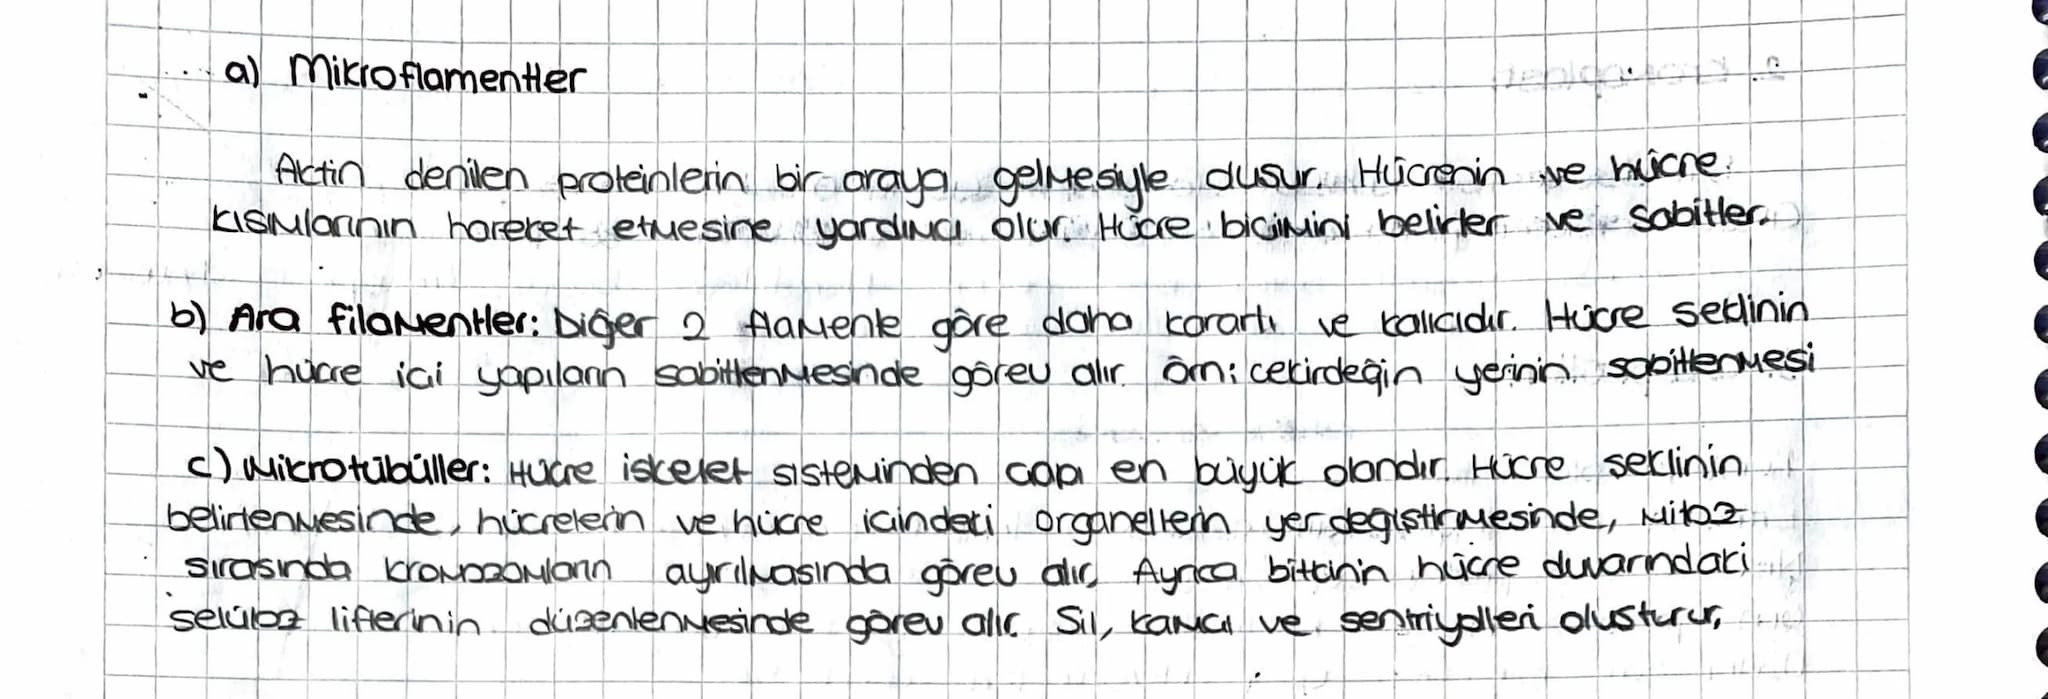 a) Mikroflamentler
Actin denilen proteinlerin bir araya gelmesiyle olusur. Hücrenin ve hücre
kısımlarının hareket etmesine yardımcı olur. Hücre biçimini belirler ve sabitler.
b) Ara filamentler: Diğer 2 flamente göre daha kararlı ve kalıcıdır. Hücre seklinin
ve hücre içi yapıların sabitlenmesinde görev alır. örn: cekirdeğin yerinin sabitlenmesi
c) Mikrotübüller: Hücre iskelet sisteminden capı en büyük olandır. Hücre seklinin
belirlenmesinde, hücrelerin ve hücre icindeki organellerin yer degistirmesinde, mitoz
sırasında kromozomların ayrılmasında görev alır. Ayrıca bitkinin hücre duvarındaki
selüloz liflerinin düzenlenmesinde görev alır. Sil, kamcı ve sentriyolleri olusturur.